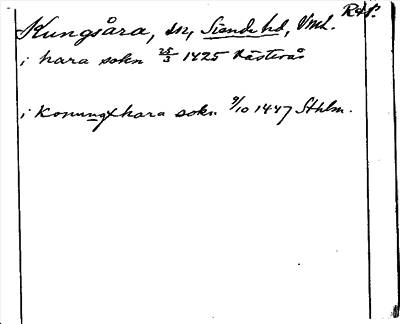 RAp.
Kungsåra, sn, Siende hd, Vml.
i hara sokn 25/3 1425 Västerås
i Konungxhara sokn 9/10 1447 Sthlm.